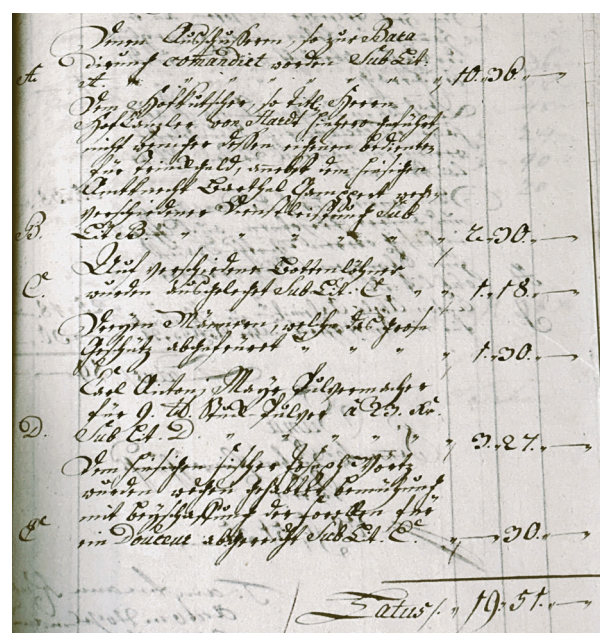 Denen Ausschussern, so zur Para
dirung comandiert worden Sub Lit:
A. A. " " " " " " " 10. 36. —
Dem Hofkutscher, so titl: Herrn
HofCanzler von Hardt hieher geführt
nicht weniger dessen eigenen bedienten
für Trinkgeld, anebst dem hiesigen
Amtknecht Barthol wegen
verschiedener Dienstleistung Sub
B. Lit: B. " " " " " " 2. 30. —
Auf verschiedene Bottenlöhner
C. wurden ausgelegt Sub Lit: C. " " 1. 18. —
Dreyen Männeren, welche das grose
Geschütz abgefeuret " " " " 1. 30. —
Carl Antoni Mayr Pulvermacher
für 9. lb. Stuck Pulver à 23. Kr.
D. Sub Lit: D. " " " " " 3. 27. —
Dem hiesigen Fischer Joseph
wurden wegen gehabter bemühung
mit Beyschaffung der forellen für
E. ein Douceur abgereicht Sub Lit: E. " — 30. —
Latus /. " 19. 51. —